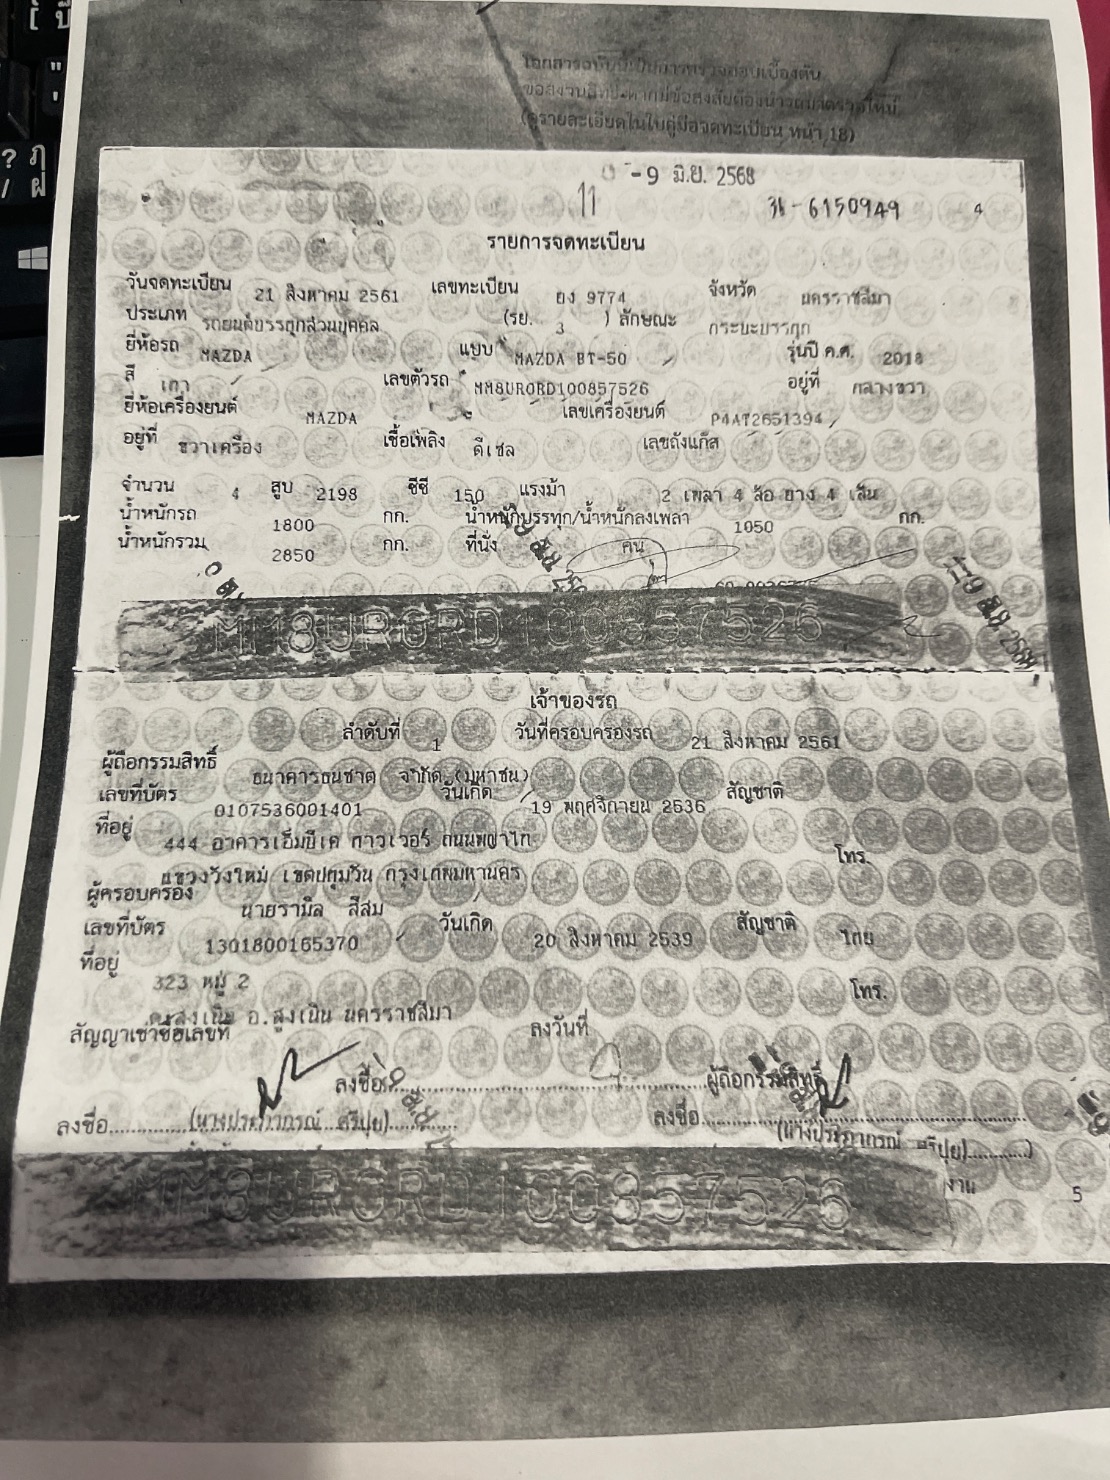 เอกสารฉบับนี้เป็นการตรวจสอบเบื้องต้น
ขอสงวนสิทธิ์หากมีข้อสงสัยต้องนำรถมาตรวจใหม่
(ดูรายละเอียดในใบคู่มือจดทะเบียน หน้า 18)
-9 มิ.ย. 2568
11
6150949
4
รายการจดทะเบียน
วันจดทะเบียน 21 สิงหาคม 2561 เลขทะเบียน ยง 9774 จังหวัด นครราชสีมา
ประเภท รถยนต์บรรทุกส่วนบุคคล (รย. 3 ) ลักษณะ กระบะบรรทุก
ยี่ห้อรถ MAZDA แบบ MAZDA BT-50 รุ่นปี ค.ศ. 2018
สี เทา เลขตัวรถ MM8UR0RD100857526 อยู่ที่ กลางขวา
ยี่ห้อเครื่องยนต์ MAZDA เลขเครื่องยนต์ P4AT2651394
อยู่ที่ ขวาเครื่อง เชื้อเพลิง ดีเซล เลขถังแก๊ส
จำนวน 4 สูบ 2198 ซีซี 150 แรงม้า 2 เพลา 4 ล้อ ยาง 4 เส้น
น้ำหนักรถ 1800 กก. น้ำหนักบรรทุก/น้ำหนักลงเพลา 1050 กก.
น้ำหนักรวม 2850 กก. ที่นั่ง คน
MM8UR0RD100857526
เจ้าของรถ
ลำดับที่ 1 วันที่ครอบครองรถ 21 สิงหาคม 2561
ผู้ถือกรรมสิทธิ์ ธนาคารธนชาต จำกัด (มหาชน)
เลขที่บัตร 0107536001401 วันเกิด 19 พฤศจิกายน 2536 สัญชาติ
ที่อยู่ 444 อาคารเอ็มบีเค ทาวเวอร์ ถนนพญาไท
แขวงวังใหม่ เขตปทุมวัน กรุงเทพมหานคร โทร.
ผู้ครอบครอง นายรามิล สีสม
เลขที่บัตร 1301800165370 วันเกิด 20 สิงหาคม 2539 สัญชาติ ไทย
ที่อยู่ 323 หมู่ 2 โทร.
ต.สูงเนิน อ.สูงเนิน นครราชสีมา
สัญญาเช่าซื้อเลขที่ ลงวันที่
ลงชื่อ ผู้ถือกรรมสิทธิ์
ลงชื่อ (นางประภาภรณ์ ศรีปุย) ลงชื่อ (นางประภาภรณ์ ศรีปุย)
MM8UR0RD100857526
5